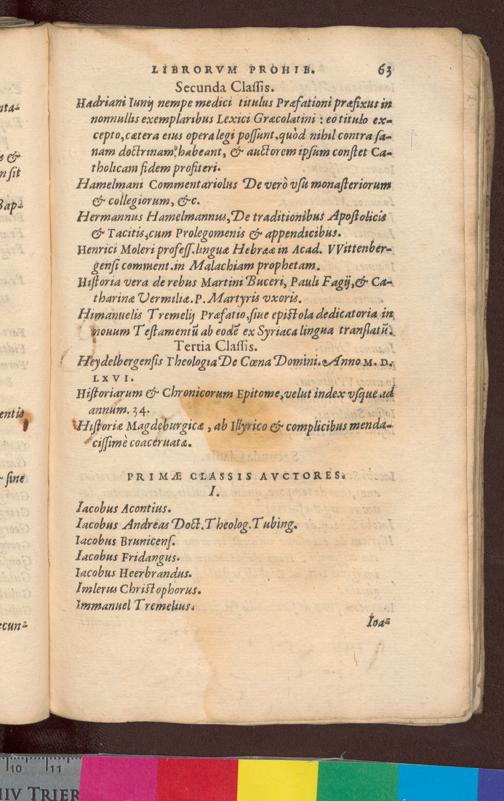 LIBRORVM PROHIB. 63
Secunda Classis.
Hadriani Iunij nempe medici titulus Præfationi præfixus in
nonnullis exemplaribus Lexici Græcolatini : eo titulo ex-
cepto, cætera eius opera legi possunt, quòd nihil contra sa-
nam doctrinam habeant, & auctorem ipsum constet Ca-
tholicam fidem profiteri.
Hamelmani Commentariolus De verò vsu monasteriorum
& collegiorum, &c.
Hermannus Hamelmannus, De traditionibus Apostolicis
& Tacitis, cum Prolegomenis & appendicibus.
Henrici Moleri profess. linguæ Hebrææ in Acad. VVittenber-
gensi comment. in Malachiam prophetam.
Historia vera de rebus Martini Buceri, Pauli Fagij, & Ca-
tharinæ Vermiliæ. P. Martyris vxoris.
Himanuelis Tremelij Præfatio, siue epistola dedicatoria in
nouum Testamentū ab eodē ex Syriaca lingua translatū.
Tertia Classis.
Heydelbergensis Theologia De Cœna Domini. Anno M. D.
LXVI.
Historiarum & Chronicorum Epitome, velut index vsque ad
annum. 34.
Historiæ Magdeburgicæ, ab Illyrico & complicibus menda-
cissimè coaceruatæ.
PRIMÆ CLASSIS AVCTORES.
I.
Iacobus Acontius.
Iacobus Andreas Doct. Theolog. Tubing.
Iacobus Brunicens.
Iacobus Fridangus.
Iacobus Heerbrandus.
Imlerus Christophorus.
Immanuel Tremelius.
Ioa-
10 11
TRIER